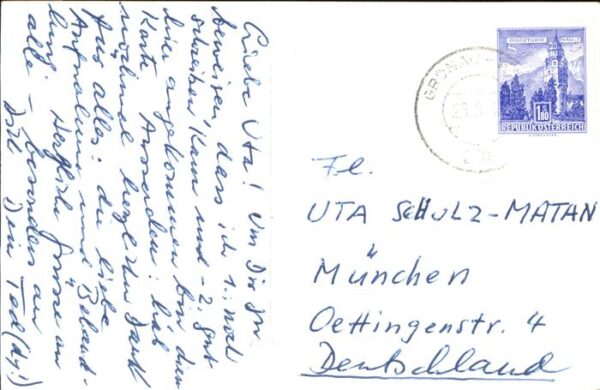 Liebe Uta! Um Dir zu
beweisen, dass ich 1. noch
schreiben kann und - 2. gut
hier angekommen bin diese
Karte. Ausserdem: lieb
nochmal herzlichen Dank
für alles: die liebe
Aufnahme und Behand-
lung. Herzliche Grüsse an
alle - besonders an
Dich Dein
MÜNZTURM HALL I. T.
S 1.80
REPUBLIK ÖSTERREICH
Frl.
UTA SCHULZ-MATAN
München
Oettingenstr. 4
Deutschland